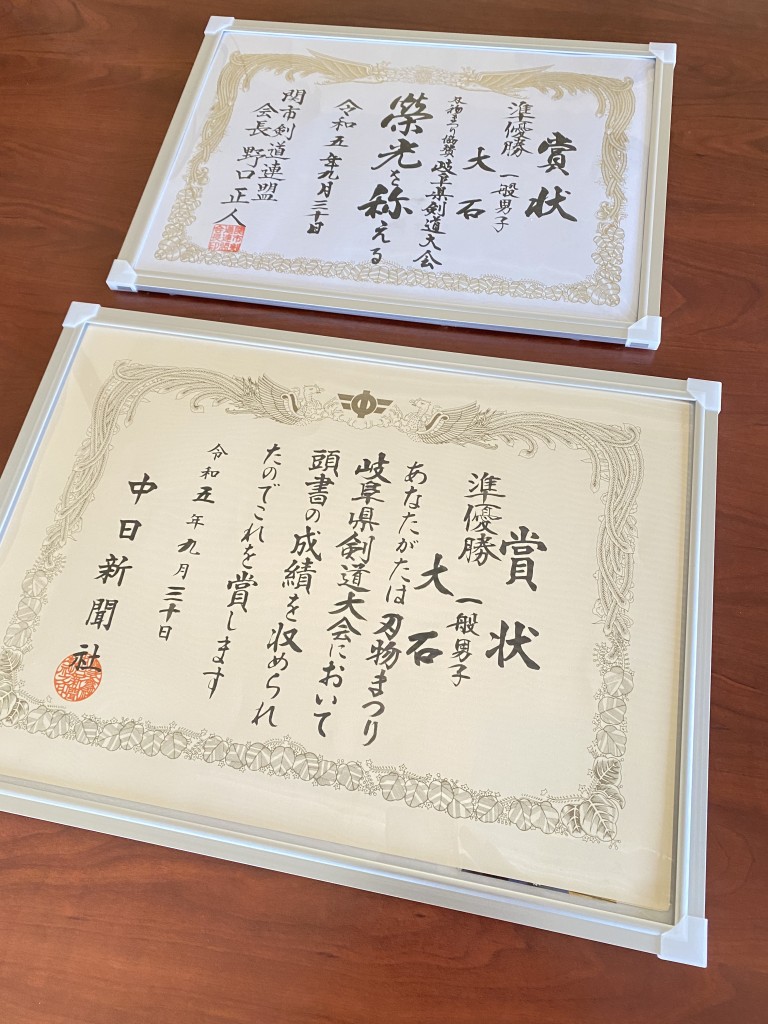 賞状
準優勝
一般男子
大石
刃物まつり協賛 岐阜県剣道大会
榮光を称える
令和五年九月三十日
関市剣道連盟
会長 野口正人
賞状
準優勝
一般男子
大石
あなたがたは刃物まつり
岐阜県剣道大会において
頭書の成績を収められ
たのでこれを賞します
令和五年九月三十日
中日新聞社
中